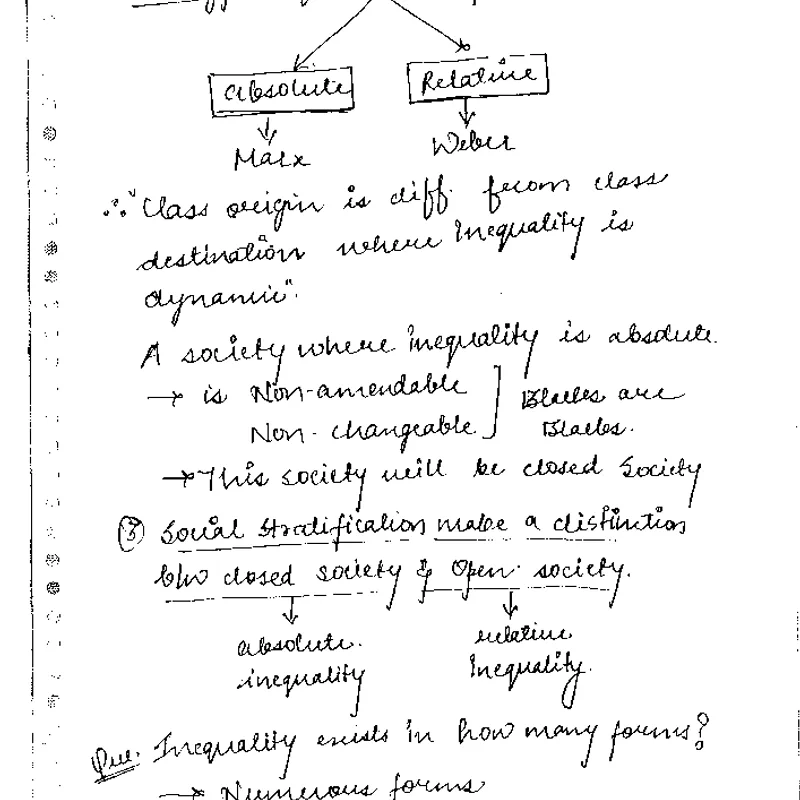 Absolute Relative
Marx Weber
∴ "Class origin is diff. from class
destination where Inequality is
dynamic".
A society where inequality is absolute.
→ is Non-amendable ] Blacks are
Non-changeable ] Blacks.
→ This society will be closed Society
③ Social Stratification make a distinction
b/w closed society & Open society.
absolute relative
inequality Inequality.
Que. Inequality exists in how many forms?
→ Numerous forms